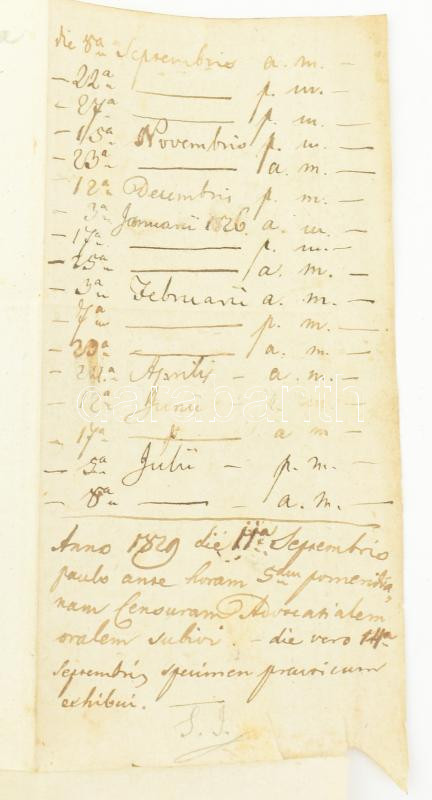 die 8a Septembris a. m. —
— 22a —— p. m. —
— 27a —— p. m. —
— 15a Novembris p. m. —
— 23a —— a. m. —
12a Decembris p. m. —
— 3a Januarii 1826. a. m. —
— 17a —— p. m. —
— 25a —— a. m. —
— 3a Februarii a. m. —
— 7a —— p. m. —
— 23a —— a. m. —
— 24a Aprilis — a. m. —
— 12a Junii — m. —
— 17a —— a m —
— 5a Julii — p. m. —
— 8a —— a. m. —
Anno 1829 die 11a Septembris
paulo ante horam 5tam pomeridia,
nam Censuram Advocatialem
oralem subivi. — die vero 14a
Septembris specimen practicum
exhibui.
darabanth